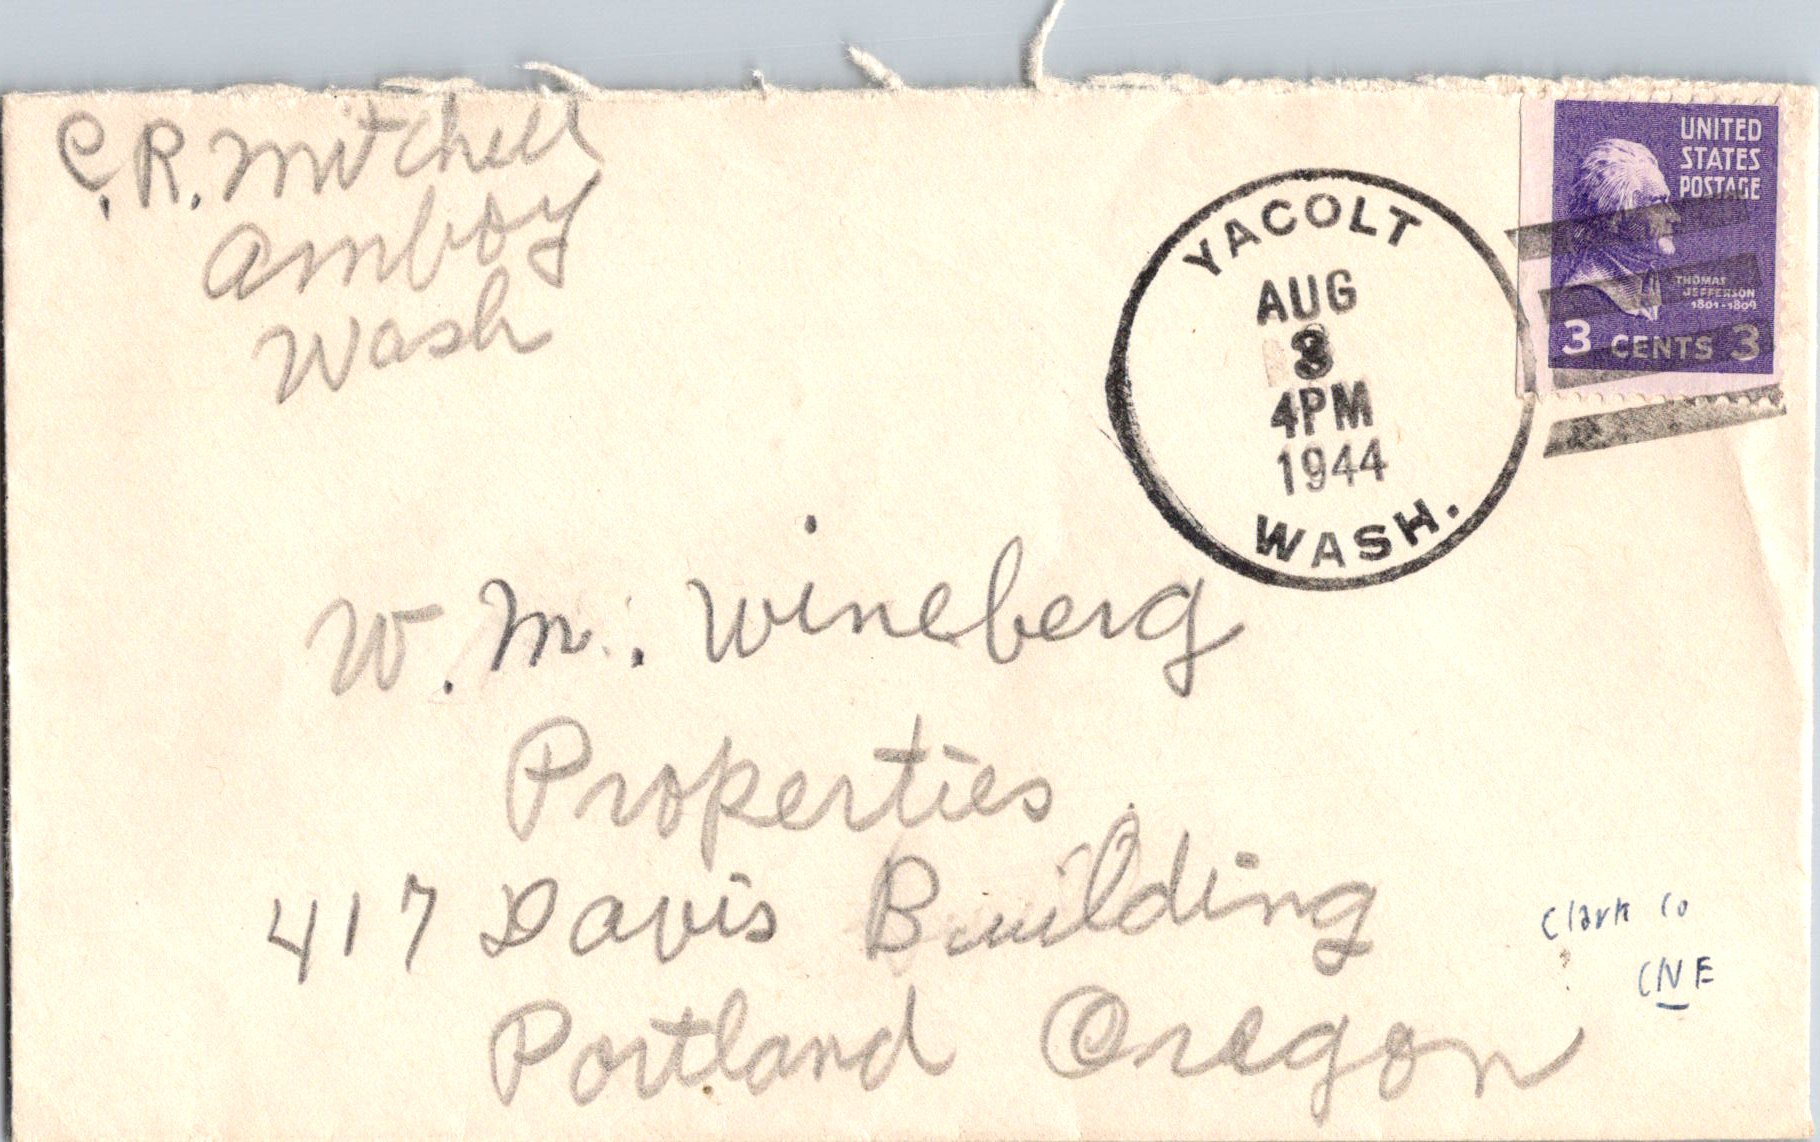 C. R. Mitchell
Amboy
Wash
YACOLT
AUG
3
4PM
1944
WASH.
UNITED
STATES
POSTAGE
THOMAS
JEFFERSON
1801-1809
3 CENTS 3
W. M. Wineberg
Properties
417 Davis Building
Portland Oregon
Clark Co
CNE